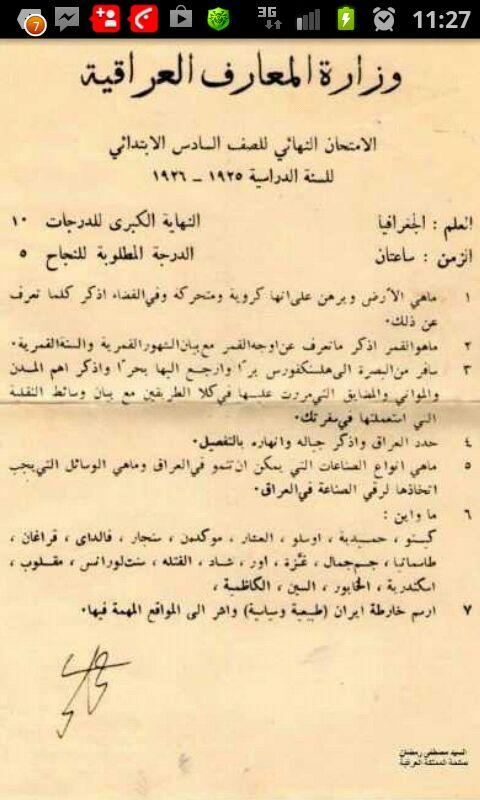 7
3G
11:27
وزارة المعارف العراقية
الامتحان النهائي للصف السادس الابتدائي
للسنة الدراسية ١٩٢٥ - ١٩٢٦
العلم : الجغرافيا النهاية الكبرى للدرجات ١٠
الزمن : ساعتان الدرجة المطلوبة للنجاح ٥
١ ماهي الأرض وبرهن على انها كروية ومتحركة وفي الفضاء اذكر كلما تعرف
عن ذلك.
٢ ماهو القمر اذكر ماتعرف عن اوجه القمر مع بيان الشهور القمرية والسنة القمرية.
٣ سافر من البصرة الى هلسنكفورس برًا وارجع اليها بحرًا واذكر اهم المدن
والمواني والمضايق التي مررت عليها في كلا الطريقين مع بيان وسائط النقلية
التي استعملتها في سفرتك.
٤ حدد العراق واذكر جباله وانهاره بالتفصيل.
٥ ماهي انواع الصناعات التي يمكن ان تنمو في العراق وماهي الوسائل التي يجب
اتخاذها لرقي الصناعة في العراق.
٦ ما واين :
كيتو ، حميدية ، اوسلو ، العشار ، موكدن ، سنجار ، فالداي ، قراغان ،
طاسمانيا ، جم جمال ، غزة ، اور ، شاد ، الفتله ، سنت لورانس ، مقلوب ،
اسكندرية ، الخابور ، السين ، الكاظمية ،
٧ ارسم خارطة ايران (طبيعية وسياسية) واشر الى المواقع المهمة فيها.
السيد مصطفى رمضان
صفحة المملكة العراقية